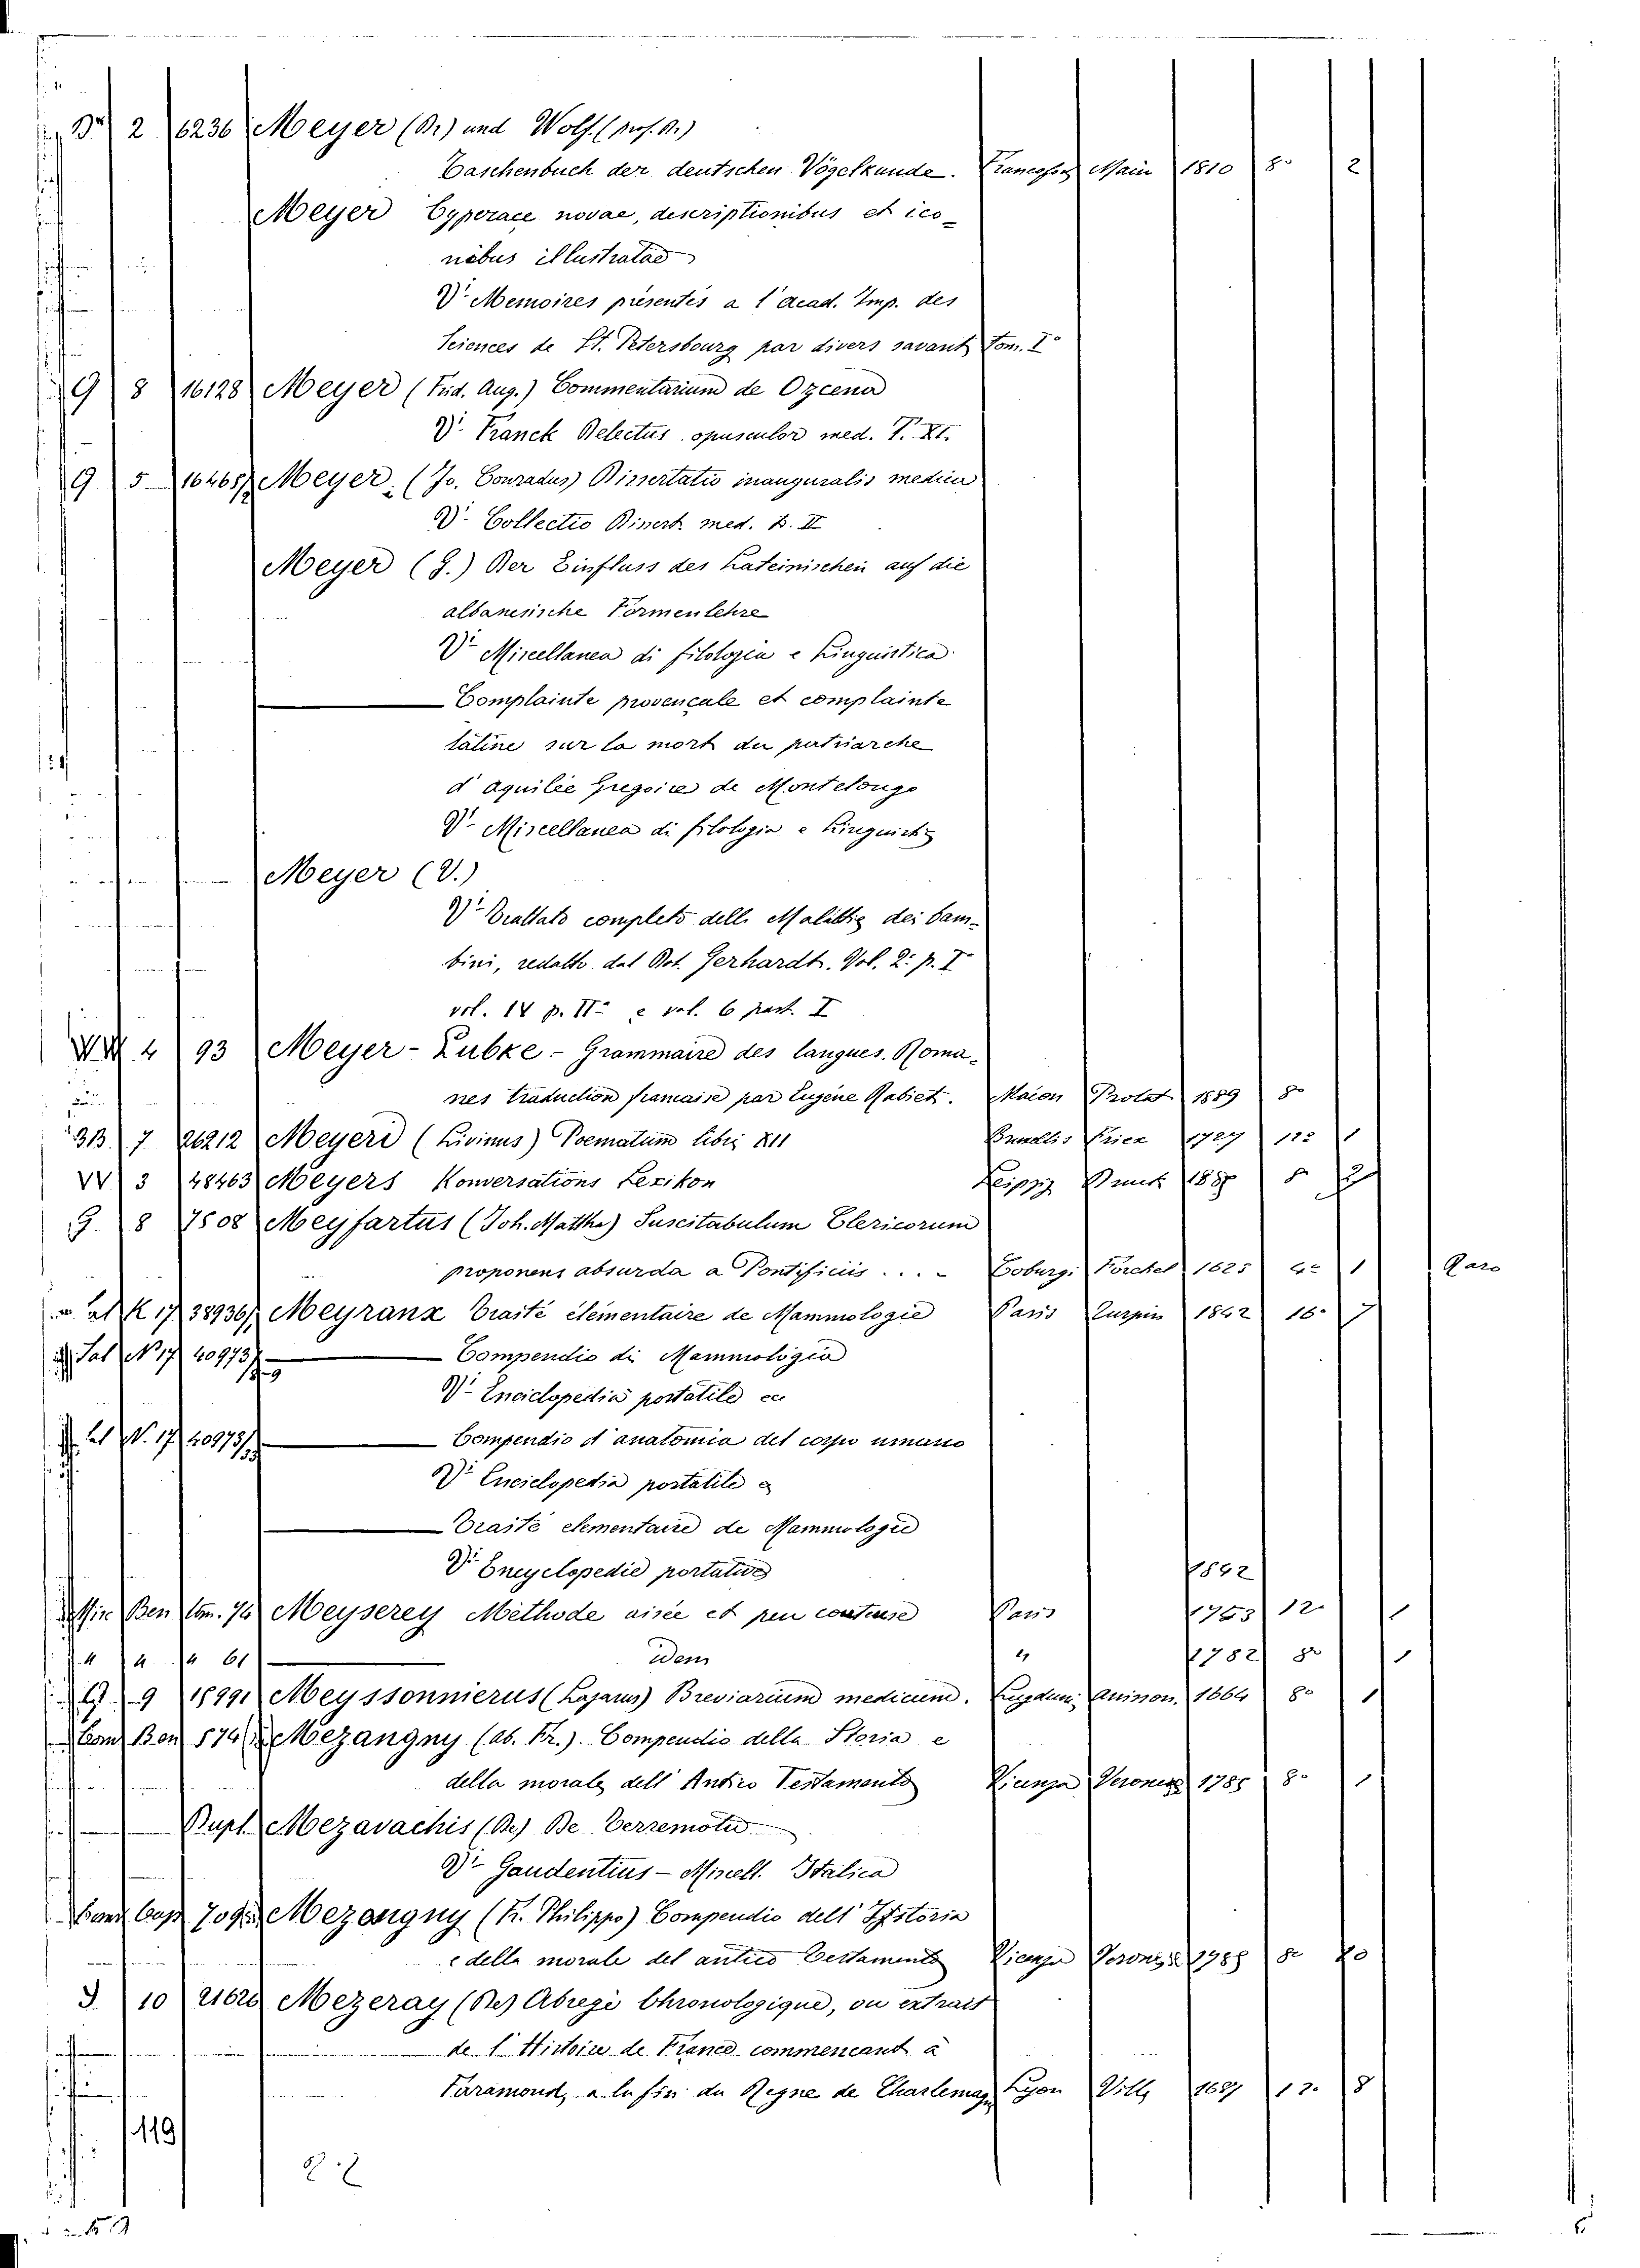 2 6236 Meyer (Dr.) und Wolf. (prof. Dr.)
Taschenbuch der deutschen Vögelkunde. Main 1810 8° 2
Meyer Cyperace novae, descriptionibus et ico-
nibus illustratae
V. Memoires présentés a l'Acad. Imp. des
Sciences de St. Petersbourg par divers savants Tom. I°
G 8 16128 Meyer (Frid. Aug.) Commentarium de Ozcena
V. Franck Delectus opusculor med. T. XI.
G 5 16465 Meyer (Jo. Conradus) Dissertatio inauguralis medica
V. Collectio Dissert. med. t. II
Meyer (G.) Der Einfluss des Lateinischen auf die
albanesische Formenlehre
V. Miscellanea di filologia e linguistica
— Complainte provençale et complainte
latine sur la mort du patriarche
d'Aquilée Gregoire de Montelongo
V. Miscellanea di filologia e linguist
Meyer (V.)
V. Trattato completo delle Malattie dei bam-
bini, redatto dal Dot. Gerhardt. Vol. 2. p. I
vol. IV p. II e vol. 6 part. I
W 4 93 Meyer-Lubke - Grammaire des langues Roma-
nes traduction francaise par Eugène Rabiet. Macon Protat 1889 8°
B 7 26212 Meyeri (Livinus) Poematum libri XII Bruxellis Fricx 1727 12° 1
VV 3 48463 Meyers Konversations Lexikon Leipzig
G. 8 7508 Meyfartus (Joh. Matthe) Suscitabulum Clericorum
proponens absurda a Pontificiis ... Coburgi Forckel 1625 4° 1 Raro
K 17 38936 Meyranx Traité élémentaire de Mammologie Paris Turpin 1842 16° 7
Sal N 17 40973 — Compendio di Mammologia
V. Enciclopedia portatile ec
N. 17 40973 — Compendio d'anatomia del corpo umano
V. Enciclopedia portatile
— Traité elementaire de Mammologie
V. Encyclopedie portative 1842
Ben tom. 74 Meyserey Méthode aisée et peu couteuse Paris 1753 12
61 — idem 1782 8° 1
9 18991 Meyssonnierus (Lazarus) Breviarium medicum. Lugduni 1664 8° 1
Ben 574 Mezangny (ab. Fr.) Compendio della Storia e
della morale dell'Antico Testamento Vicenza Veronese 1785 8° 1
Dupl. Mezavachis (De) De Terremotu
V. Gaudentius - Miscell. Italica
Cap 709 Mezangny (F. Philippo) Compendio dell'Istoria
e della morale del antico Testamento Vicenza Veronese 8°
10 21626 Mezeray (De) Abregé Chronologique, ou extrait
de l'Histoire de France commencant à
Faramond, a la fin du Regne de Charlemag Lyon 12° 8
119